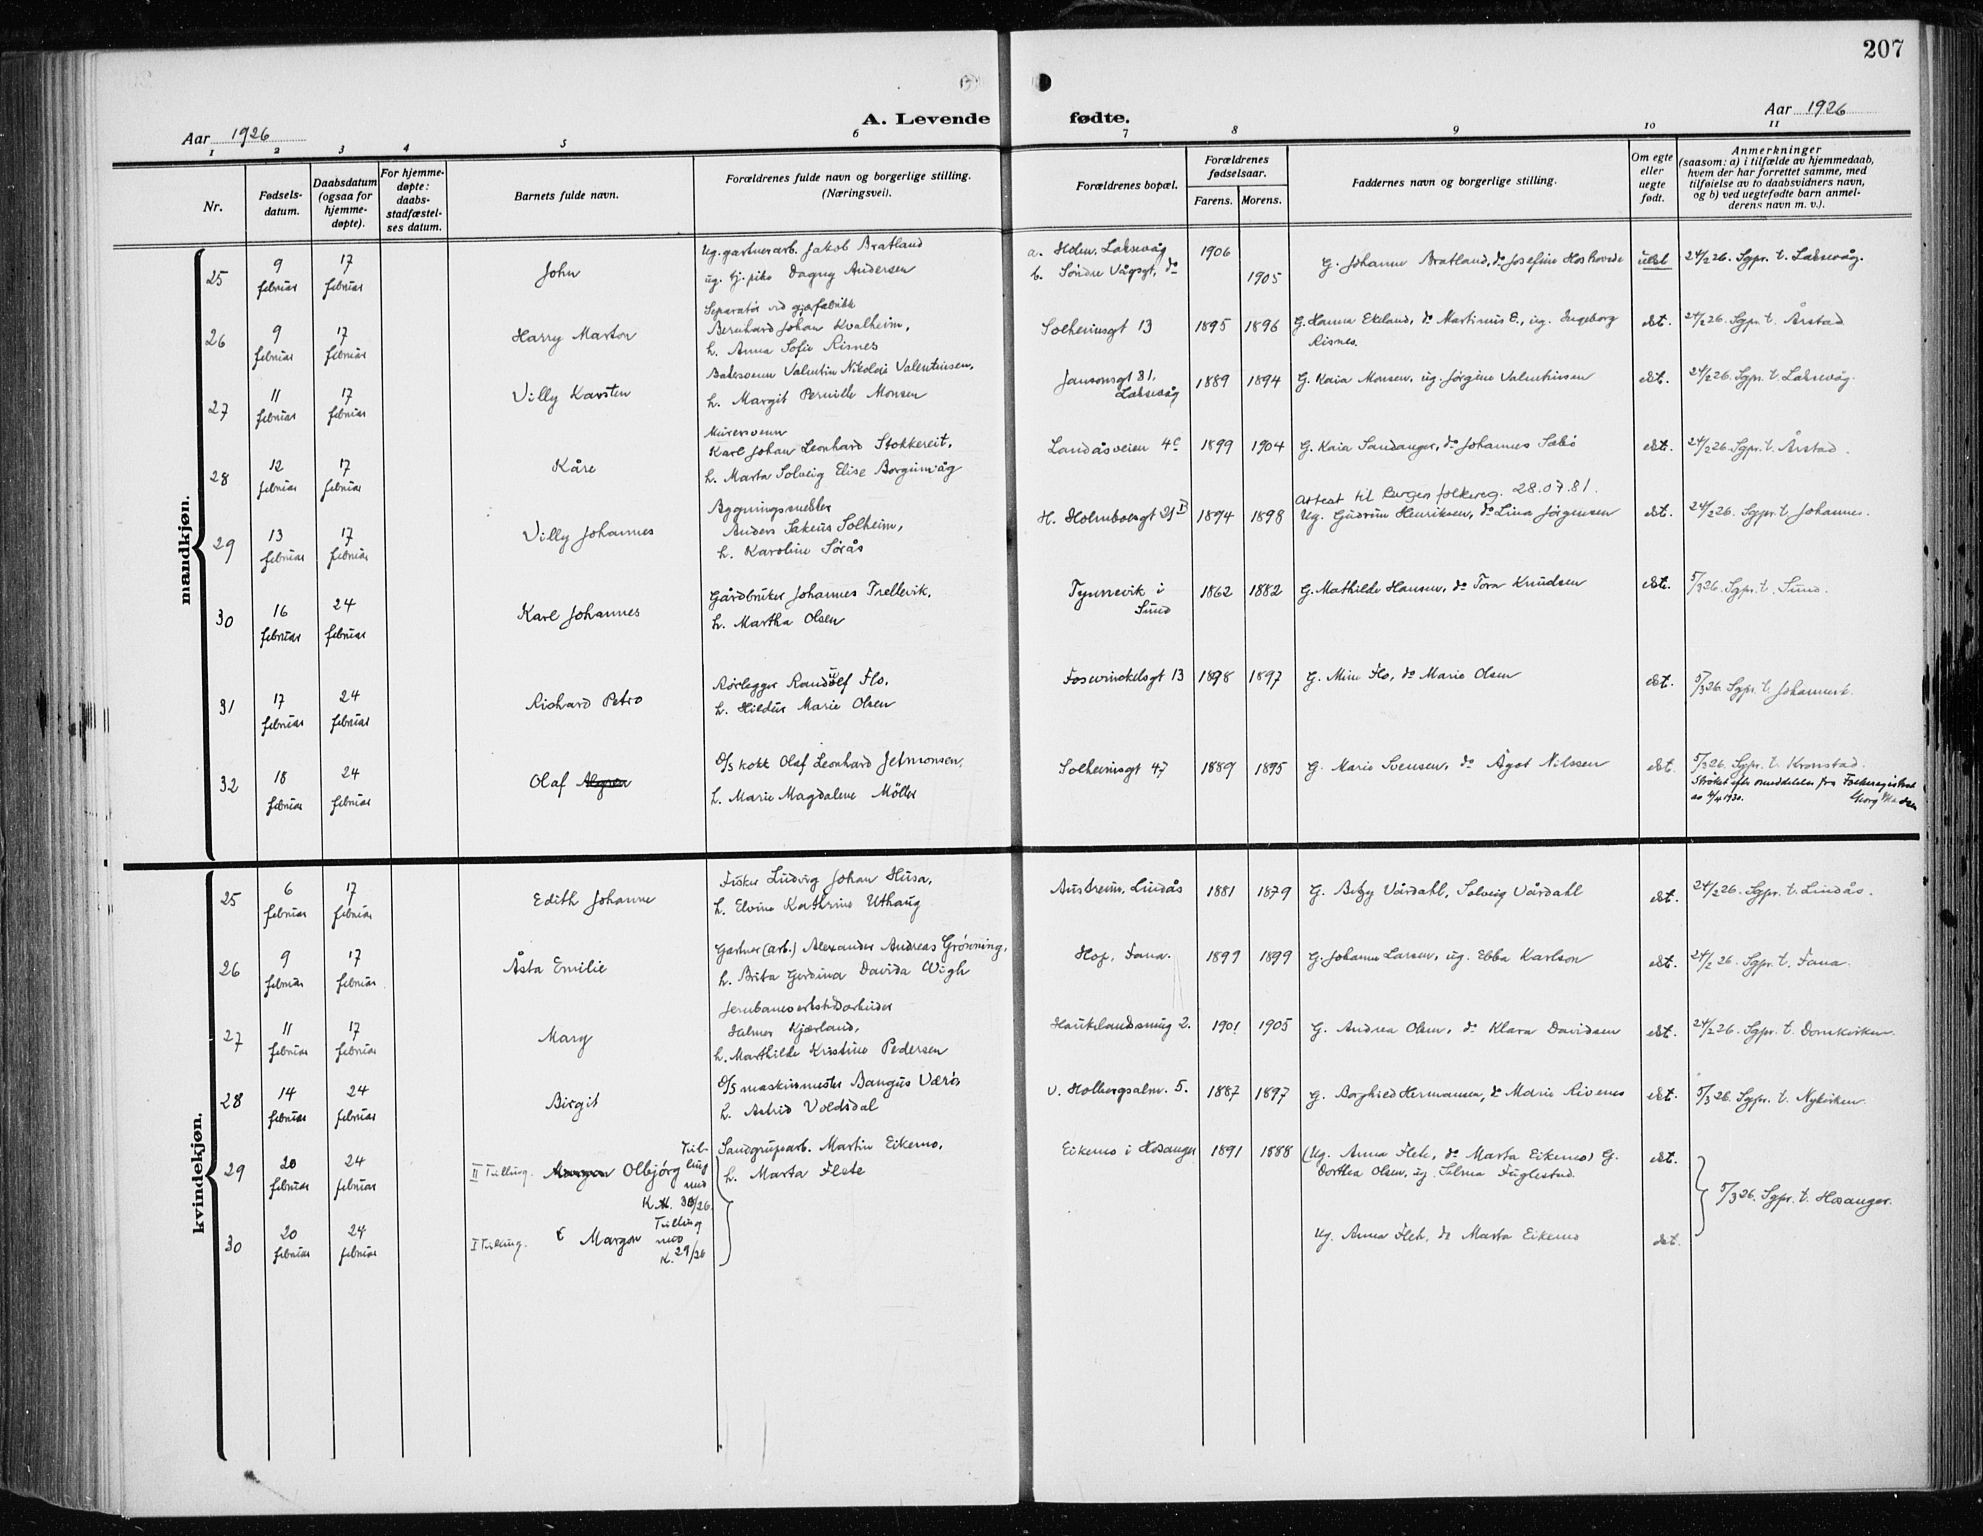 207
Aar 1926
A. Levende fødte.
Aar 1926
1 2 3 4 5 6 7 8 9 10 11
Nr.
Fødsels-
datum.
Daabsdatum
(ogsaa for
hjemme-
døpte).
For hjemme-
døpte:
daabs-
stadfæstel-
ses datum.
Barnets fulde navn.
Forældrenes fulde navn og borgerlige stilling.
(Næringsvei).
Forældrenes bopæl.
Forældrenes
fødselsaar.
Farens. Morens.
Faddernes navn og borgerlige stilling.
Om egte
eller
uegte
født.
Anmerkninger
(saasom: a) i tilfælde av hjemmedaab,
hvem der har forrettet samme, med
tilføielse av to daabsvidners navn,
og b) ved uegtefødte barn anmel-
derens navn m. v.).
mandkjøn.
25 9 februar 17 februar John
Ug. gartnerarb. Jakob Bratland
ug. tj. pike Dagny Andersen
a. Holen, Laksevåg 1906
b. Søndre Vågsgt, do 1905
G. Johanne Bratland, do Josefine
24/2 26. Sgpr. t. Laksevåg.
26 9 februar 17 februar Harry Marton
Separatør ved
Bernhard Johan Kvalheim,
h. Anna Sofie Risnes
Solheimsgt 13 1895 1896
G. Hanna Ekeland, do Martinus E., ug. Ingeborg
Risnes.
ekt. 24/2 26. Sgpr. t. Årstad
27 11 februar 17 februar Villy Karsten
Bakersvenn Valentin Nikolai Valentinsen,
h. Margit Pernille Monsen
Jansonsgt 81,
Laksevåg
1889 1894 G. Kaia Monsen, ug. Jørgine Valentinsen
ekt. 24/2 26. Sgpr. t. Laksevåg.
28 12 februar 17 februar Kåre
Murersvenn
Karl Johan Leonhard Stokkereit,
h. Marta Solveig Elise Borgimvåg
Landåsveien 4c 1899 1904 G. Kaia Sandanger, do Johannes Sæbø
ekt. 24/2 26. Sgpr. t. Årstad.
29 13 februar 17 februar Villy Johannes
Bygningssnekker
Anders Sakeus Solheim,
h. Karoline Sørås
H. Holmboesgt 21 B 1894 1898
Attest til Bergen folkereg. 28.07.81.
Ug. Gudrun Henriksen, do Lina Jørgensen
ekt. 24/2 26. Sgpr. t. Johannes.
30 16 februar 24 februar Karl Johannes
Gårdbruker Johannes Trellevik,
h. Martha Olsen
Tynnevik i
Sund
1862 1882 G. Mathilde Hansen, do Tora Knudsen
ekt. 5/3 26. Sgpr. t. Sund.
31 17 februar 24 februar Richard Petro
Rørlegger Randulf Flo,
h. Hildur Marie Olsen
Fosswinckelsgt 13 1898 1897 G. Mina Flo, do Marie Olsen
ekt. 5/3 26. Sgpr. t. Johannesk.
32 18 februar 24 februar Olaf
D/S kokk Olaf Leonhard Jetmonsen,
h. Marie Magdalene Møller
Solheimsgt 47 1889 1895 G. Marie Svensen, do Ågot Nilssen
ekt. 5/3 26. Sgpr. t. Kronstad.
Strøket efter meddelelse fra Folkeregisteret
1930. Georg
kvindekjøn.
25 6 februar 17 februar Edith Johanne
Fisker Ludvig Johan Husa,
h. Elvine Kathrine Uthaug
Austreim, Lindås 1881 1879 G. Betzy Vårdahl, Solveig Vårdahl
ekt. 24/2 26. Sgpr. t. Lindås.
26 9 februar 17 februar Åsta Emilie
Gartner (arb.) Alexander Andreas Grönning,
h. Brita Gerdina Davida Wigh
Hop, Fana. 1899 1899 G. Johanne Larsen, ug. Ebba Karlson
ekt. 24/2 26. Sgpr. t. Fana.
27 11 februar 17 februar Mary
Jernbaneverkstedarbeider
Helmer Kjærland,
h. Marthilde Kristine Pedersen
Haukelandssmug 2. 1901 1905 G. Andrea Olsen, do Klara Davidsen
ekt. 24/2 26. Sgpr. t. Domkirken.
28 14 februar 24 februar Birgit
D/S maskinmester Bangus Værøs
h. Astrid Voldsdal
v. Holbergsalm. 5. 1887 1897 G. Borghild Hermansen, do Marie Rivenes
ekt. 5/3 26. Sgpr. t. Nykirken.
29 20 februar 24 februar II Tvilling. Margon Olbjørg Tvil-
ling
med
K. N. 30/26.
Sandgrupearb. Martin Eikemo,
h. Marta Flete
Eikemo i Hosanger 1891 1888 (Ug. Anna Flete, do Marta Eikemo) G.
Dorthea Olsen, ug. Selma Fuglestad.
ekt. 5/3 26. Sgpr. t. Hosanger.
30 20 februar 24 februar I Tvilling. Margon Tvilling
med
K. 29/26
Ug. Anna Flete, do Marta Eikemo
ekt.